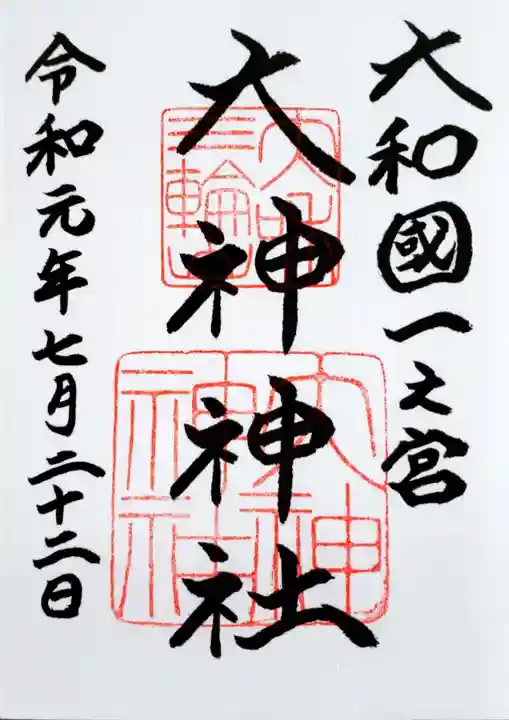 大和國一之宮
大神神社
令和元年七月二十二日
三輪山
大神神社